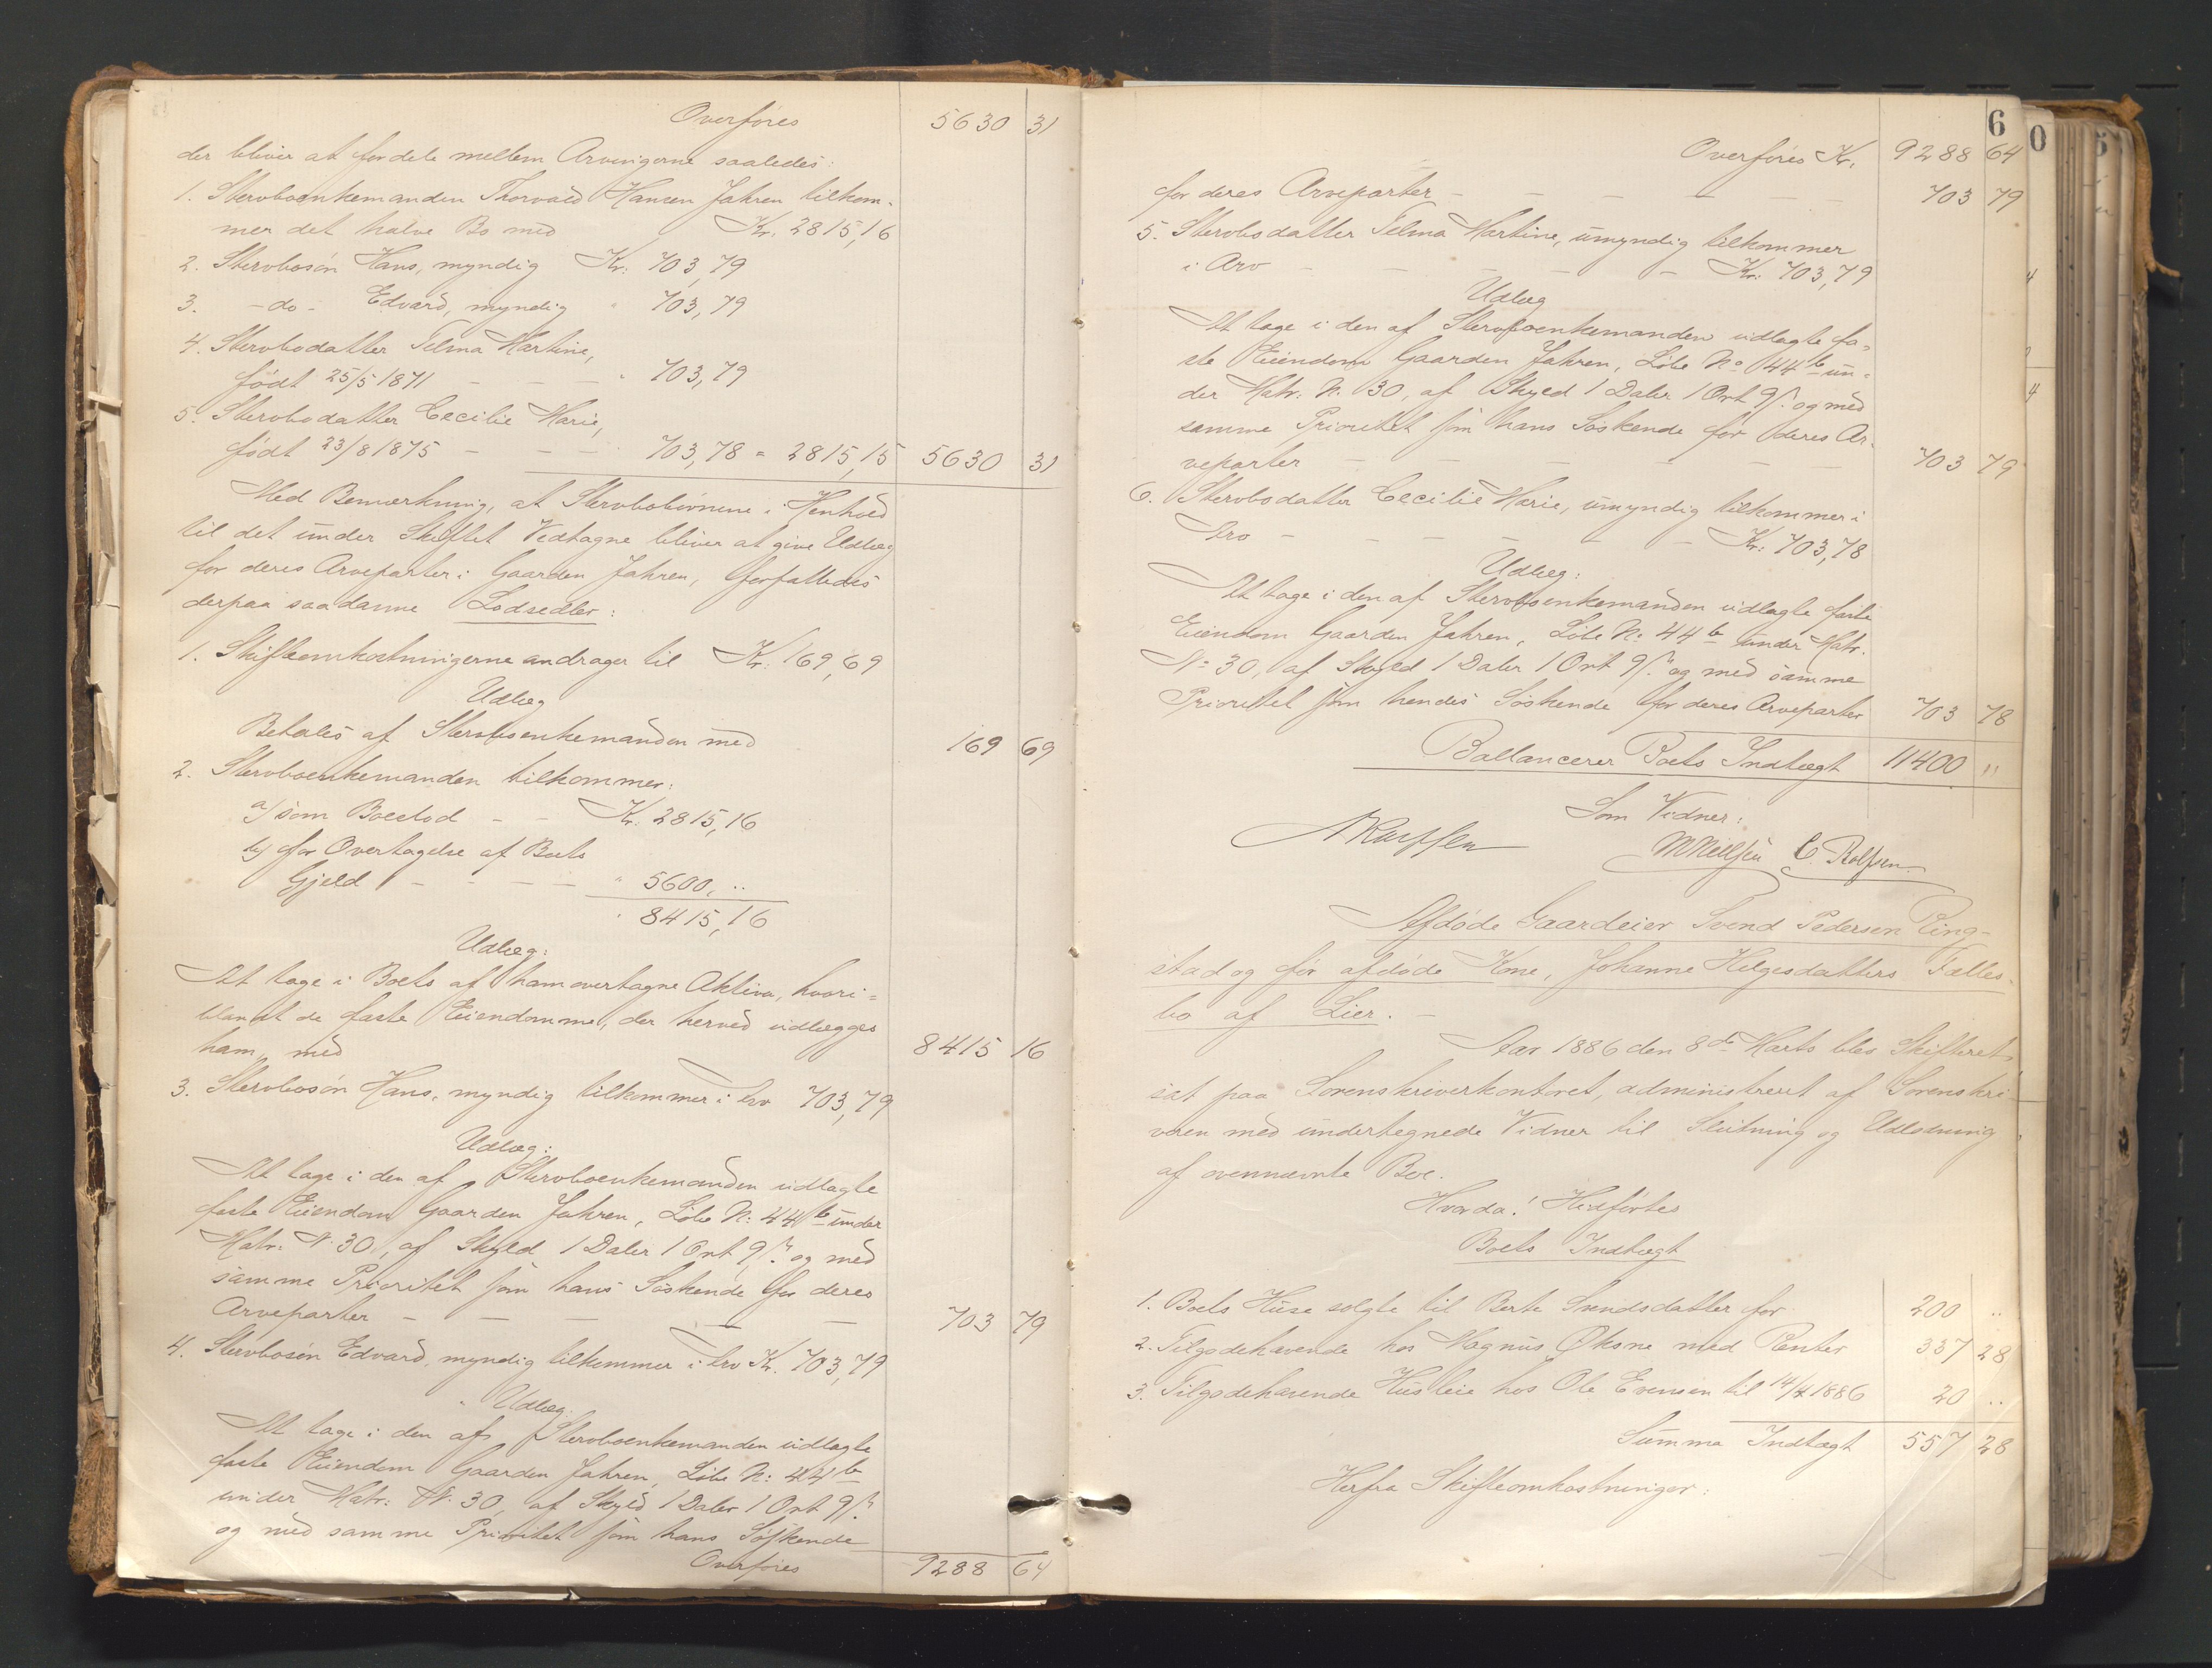 Overføres 5630 31
der bliver at fordele mellem Arvingerne saaledes:
1. Stervboenkemanden Thorvald Hansen Jahren tilkom-
mer det halve Bo med Kr. 2815,16
2. Stervbosøn Hans, myndig Kr: 703,79
3. -do- Edvard, myndig " 703,79
4. Stervbodatter Telma Martine,
født 25/5 1871 - - - " 703,79
5. Stervbodatter Cecilie Marie,
født 23/8 1875 - - - 703,78 = 2815,15 5630 31
Med Bemærkning, at Stervbobørnene i Henhold
til det under Skiftet Vedtagne bliver at give Udlæg
for deres Arveparter i Gaarden Jahren, forfattedes
derpaa saadanne Lodsedler:
1. Skifteomkostningerne andrager til Kr: 169,69
Udlæg
Betales af Stervboenkemanden med 169 69
2. Stervboenkemanden tilkommer:
a/ som Boeslod - - Kr. 2815,16
b/ for Overtagelse af Boets
Gjeld - - - - " 5600,..
" 8415,16
Udlæg:
At tage i Boets af ham overtagne Aktiva, hvori=
blandt de faste Eiendomme, der herved udlægges
ham, med 8415 16
3. Stervbosøn Hans, myndig tilkommer i Arv 703,79
Udlæg:
At tage i den af Stervboenkemanden udlagte
faste Eiendom Gaarden Jahren, Løbe N: 44 b under
Matr: N: 30, af Skyld 1 Daler 1 Ort 9 s. og med
samme Prioritet som hans Søskende for deres
Arveparter - - - - - 703 79
4. Stervbosøn Edvard, myndig tilkommer i Arv Kr. 703,79
Udlæg:
At tage i den af Stervboenkemanden udlagte
faste Eiendom Gaarden Jahren, Løbe N: 44 b
under Matr: N: 30, af Skyld 1 Daler 1 Ort 9 s.
og med samme Prioritet som hans Søskende
Overføres 9288 64
6
Overføres Kr. 9288 64
for deres Arveparter - - - - - - 703 79
5. Stervbodatter Telma Martine, umyndig tilkommer
i Arv - - - - - Kr: 703,79
Udlæg
At tage i den af Stervboenkemanden udlagte fa-
ste Eiendom Gaarden Jahren, Løbe No 44 b un-
der Matr: N. 30, af Skyld 1 Daler 1 Ort 9 s. og med
samme Prioritet som hans Søskende for deres Ar-
veparter - - - - - - 703 79
6. Stervbodatter Cecilie Marie, umyndig tilkommer i
Arv - - - - - - Kr: 703,78
Udlæg:
At tage i den af Stervboenkemanden udlagte faste
Eiendom Gaarden Jahren, Løbe N: 44 b under Matr.
No 30, af Skyld 1 Daler 1 Ort 9 s. og med samme
Prioritet som hendes Søskende for deres Arveparter 703 78
Ballancerer Boets Indtægt 11400 "
Som Vidner:
M Nielsen C. Rolfsen
Afdøde Gaardeier Svend Pedersen Ring-
stad og før afdøde Kone, Johanne Helgesdatters Fælles-
bo af Lier. -
Aar 1886 den 8de Marts blev Skifteret
sat paa Sorenskriverkontoret, administreret af Sorenskri-
veren med undertegnede Vidner til Slutning og Udlodning
af ovennævnte Bo.
Hvorda! Hidførtes
Boets Indtægt
1. Boets Huse solgte til Berte Svendsdatter for 200 ..
2. Tilgodehavende hos Magnus Øksne med Renter 337 28
3. Tilgodehavende Husleie hos Ole Evensen til 14/4 1886 20 ..
Summa Indtægt 557 28
Herfra Skifteomkostninger: